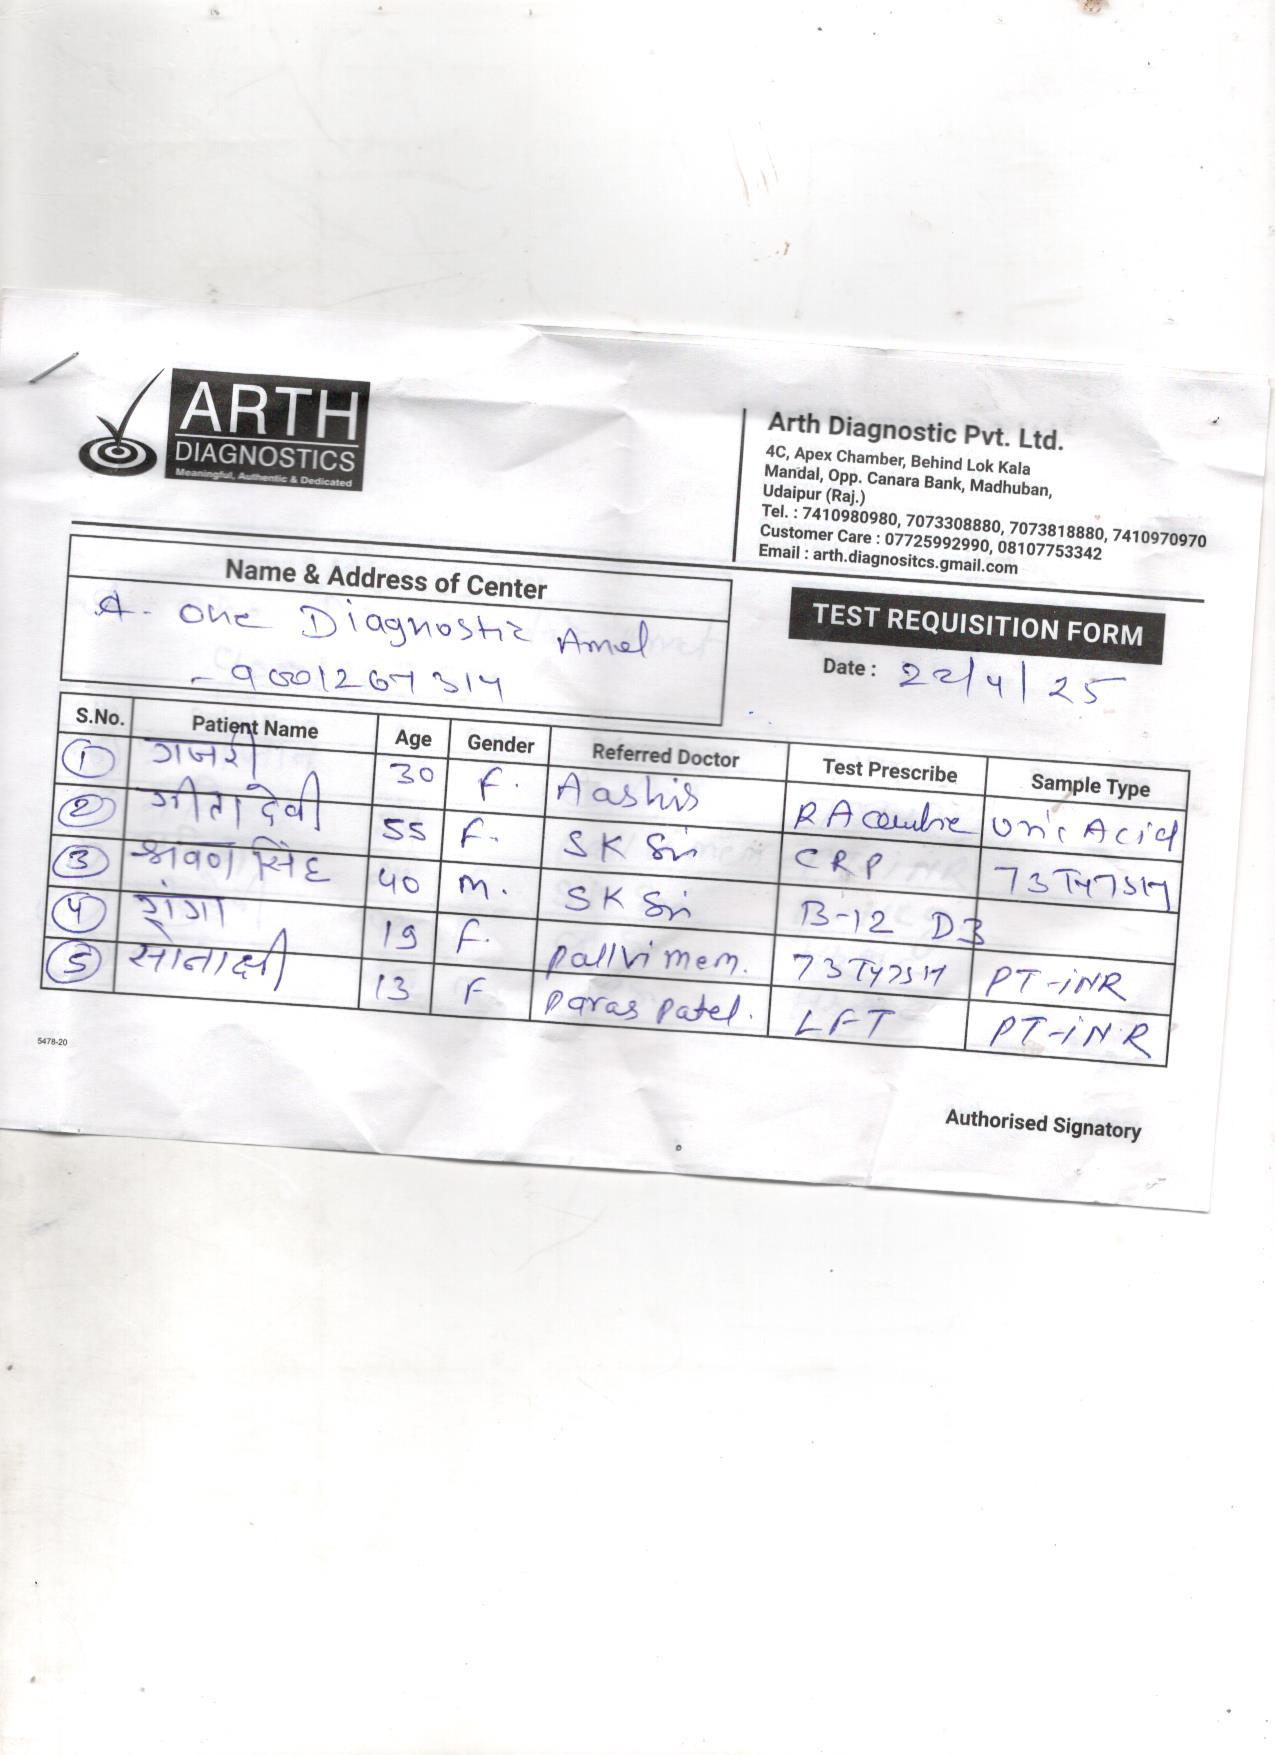 ARTH
DIAGNOSTICS
Meaningful, Authentic & Dedicated
Arth Diagnostic Pvt. Ltd.
4C, Apex Chamber, Behind Lok Kala
Mandal, Opp. Canara Bank, Madhuban,
Udaipur (Raj.)
Tel. : 7410980980, 7073308880, 7073818880, 7410970970
Customer Care : 07725992990, 08107753342
Email : arth.diagnositcs.gmail.com
Name & Address of Center
A. One Diagnostic Amet
- 9001267314
TEST REQUISITION FORM
Date : 22/4/25
S.No. Patient Name Age Gender Referred Doctor Test Prescribe Sample Type
1 गजरी 30 F. Aashis RA Uric Acid
2 गीता देवी 55 F. SK Sir CRP T3T4TSH
3 श्रवण सिंह 40 M. SK Sir B-12 D3
4 19 F. Pallvi mem. T3T4TSH PT-iNR
5 सोनाक्षी 13 F Paras Patel. LFT PT-iNR
5478-20
Authorised Signatory